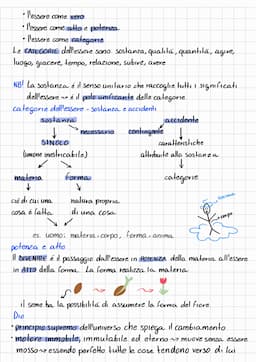 • l'essere come vero
• l'essere come atto e potenza
• l'essere come categorie
Le CATEGORIE dell'essere sono sostanza, qualità, quantità, agire,
luogo, giacere, tempo, relazione, subire, avere
NB! La sostanza è il senso unitario che raccoglie tutti i significati
dell'essere → è il polo unificante delle categorie.
categorie dell'essere - sostanza e accidenti
sostanza accidente
necessario contingente
SINOLO caratteristiche
(unione inestricabile) attribuite alla sostanza
materia forma categorie
ciò di cui una natura propria
cosa è fatta di una cosa.
es. uomo: materia-corpo, forma-anima
anima
corpo
potenza e atto
Il DIVENIRE è il passaggio dall'essere in POTENZA della materia all'essere
in ATTO della forma. La forma realizza la materia.
il seme ha la possibilità di assumere la forma del fiore.
Dio
• principio supremo dell'universo che spiega il cambiamento
• motore immobile, immutabile ed eterno → muove senza essere
mosso → essendo perfetto tutte le cose tendono verso di lui